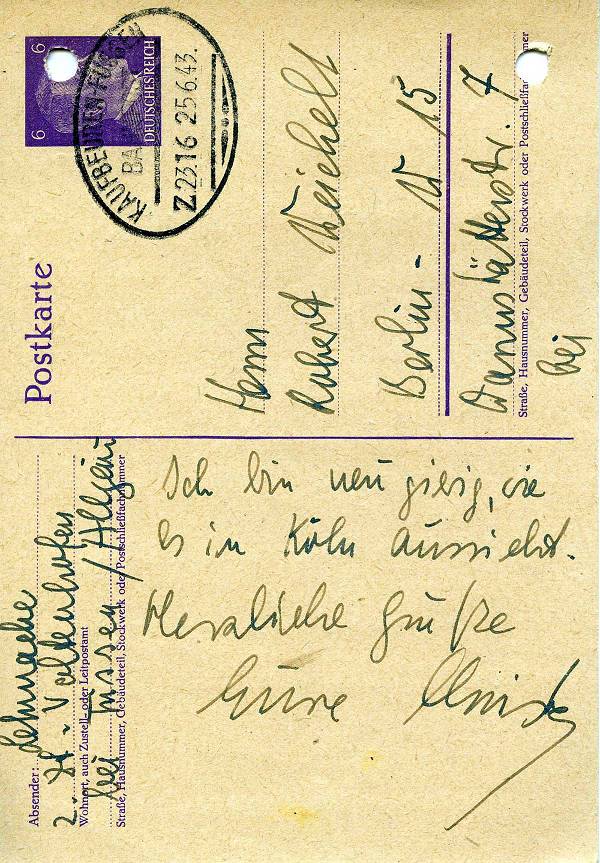 Postkarte
6
6
DEUTSCHES REICH
KAUFBEUREN-FÜSSEN
Z 2316 25.6.43.
Herrn
Robert Reichelt
Berlin - W 15
Darmstädterstr. 7
Straße, Hausnummer, Gebäudeteil, Stockwerk oder Postschließfachnummer
bei
Absender:
z. Zt. Valtenhofen
Wohnort, auch Zustell- oder Leitpostamt
bei Füssen / Allgäu
Straße, Hausnummer, Gebäudeteil, Stockwerk oder Postschließfachnummer
Ich bin neugierig, wie
es in Köln aussieht.
Herzliche Grüße
Eure